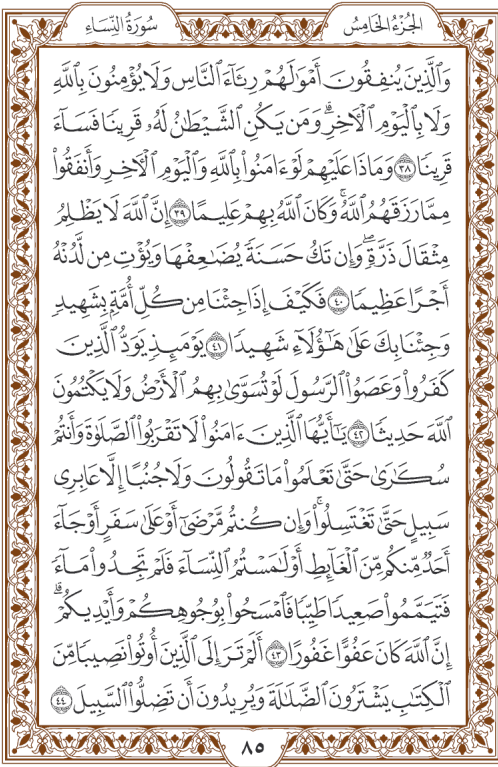 سُورَةُ النِّسَاءِ
الجُزْءُ الخَامِسُ
وَٱلَّذِينَ يُنفِقُونَ أَمْوَٰلَهُمْ رِئَآءَ ٱلنَّاسِ وَلَا يُؤْمِنُونَ بِٱللَّهِ
وَلَا بِٱلْيَوْمِ ٱلْأٓخِرِۗ وَمَن يَكُنِ ٱلشَّيْطَٰنُ لَهُۥ قَرِينًا فَسَآءَ
قَرِينًا ٣٨ وَمَاذَا عَلَيْهِمْ لَوْ ءَامَنُوا۟ بِٱللَّهِ وَٱلْيَوْمِ ٱلْأٓخِرِ وَأَنفَقُوا۟
مِمَّا رَزَقَهُمُ ٱللَّهُۚ وَكَانَ ٱللَّهُ بِهِمْ عَلِيمًا ٣٩ إِنَّ ٱللَّهَ لَا يَظْلِمُ
مِثْقَالَ ذَرَّةٍۖ وَإِن تَكُ حَسَنَةً يُضَٰعِفْهَا وَيُؤْتِ مِن لَّدُنْهُ
أَجْرًا عَظِيمًا ٤٠ فَكَيْفَ إِذَا جِئْنَا مِن كُلِّ أُمَّةٍۭ بِشَهِيدٍ
وَجِئْنَا بِكَ عَلَىٰ هَٰٓؤُلَآءِ شَهِيدًا ٤١ يَوْمَئِذٍ يَوَدُّ ٱلَّذِينَ
كَفَرُوا۟ وَعَصَوُا۟ ٱلرَّسُولَ لَوْ تُسَوَّىٰ بِهِمُ ٱلْأَرْضُ وَلَا يَكْتُمُونَ
ٱللَّهَ حَدِيثًا ٤٢ يَٰٓأَيُّهَا ٱلَّذِينَ ءَامَنُوا۟ لَا تَقْرَبُوا۟ ٱلصَّلَوٰةَ وَأَنتُمْ
سُكَٰرَىٰ حَتَّىٰ تَعْلَمُوا۟ مَا تَقُولُونَ وَلَا جُنُبًا إِلَّا عَابِرِى
سَبِيلٍ حَتَّىٰ تَغْتَسِلُوا۟ۚ وَإِن كُنتُم مَّرْضَىٰٓ أَوْ عَلَىٰ سَفَرٍ أَوْ جَآءَ
أَحَدٌ مِّنكُم مِّنَ ٱلْغَآئِطِ أَوْ لَٰمَسْتُمُ ٱلنِّسَآءَ فَلَمْ تَجِدُوا۟ مَآءً
فَتَيَمَّمُوا۟ صَعِيدًا طَيِّبًا فَٱمْسَحُوا۟ بِوُجُوهِكُمْ وَأَيْدِيكُمْۗ
إِنَّ ٱللَّهَ كَانَ عَفُوًّا غَفُورًا ٤٣ أَلَمْ تَرَ إِلَى ٱلَّذِينَ أُوتُوا۟ نَصِيبًا مِّنَ
ٱلْكِتَٰبِ يَشْتَرُونَ ٱلضَّلَٰلَةَ وَيُرِيدُونَ أَن تَضِلُّوا۟ ٱلسَّبِيلَ ٤٤
٨٥